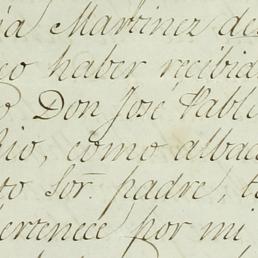 ia Martinez de
co haber recibid
Don José Pabl
io, como albac
to Sor. padre, t
ertenece por mi